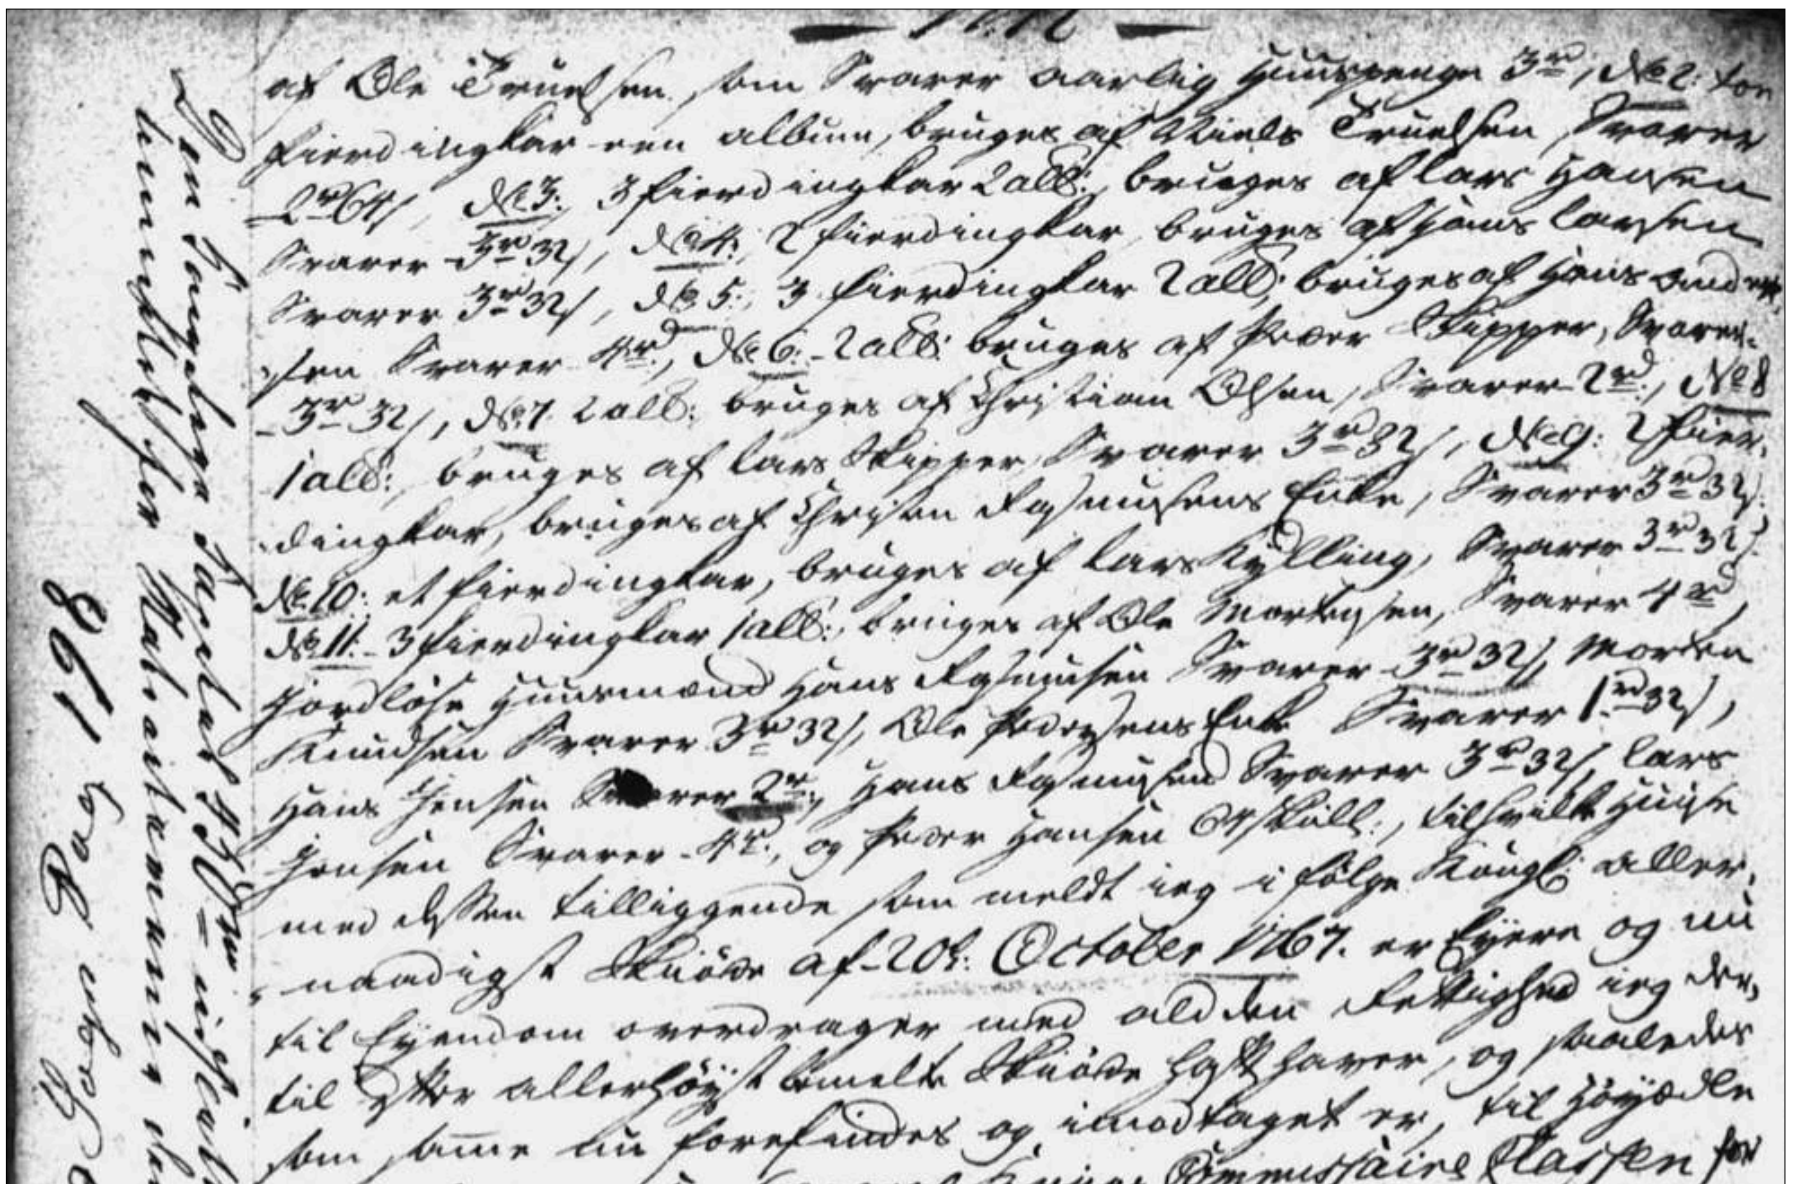 af Ole Truelsen, som Svarer aarlig Huuspenge 3rd, No 2: toe
fierdingkar een album, bruges af Niels Truelsen, Svarer
2rd 64s, No 3: 3 fierdingkar 2 alb:, bruges af Lars Hansen
Svarer 3rd 32s, No 4: 2 fierdingkar, bruges af Hans Larsen
Svarer 3rd 32s, No 5: 3 fierdingkar 2 alb:, bruges af Hans Ander-
sen Svarer 4rd, No 6: 2 alb: bruges af Peder Skipper, Svarer
3rd 32s, No 7. 2 alb: bruges af Christian Olsen, Svarer 2rd, No 8
1 alb:, bruges af Lars Skipper, Svarer 3rd 32s, No 9: 2 fier-
dingkar, bruges af Christen Rasmusens Enke, Svarer 3rd 32s:
No 10: et fierdingkar, bruges af Lars Kylling, Svarer 3rd 32s.
No 11: 3 fierdingkar 1 alb:, bruges af Ole Mortensen, Svarer 4rd,
Jordløse Huusmænd Hans Rasmusen Svarer 3rd 32s, Morten
Knudsen Svarer 3rd 32s, Ole Pedersens Enke Svarer 1rd 32s,
Hans Jensen Svarer 2rd:, Hans Rasmusen Svarer 3rd 32s, Lars
Jensen Svarer 4rd:, og Peder Hansen 64 skill:, tilhvilke Huuse
med dessen tilliggende som meldt ieg i følge Kongl: aller-
naadigst Skiøde af 20de: October 1767. er Eyere og nu
til Eyendom overdrager med ald den Rettighed ieg der-
til efter allerhøyst bemelte Skiøde hafft haver, og saaledes
som same nu forefindes og imodtaget er, til Høyædle
Commissaire Classen for